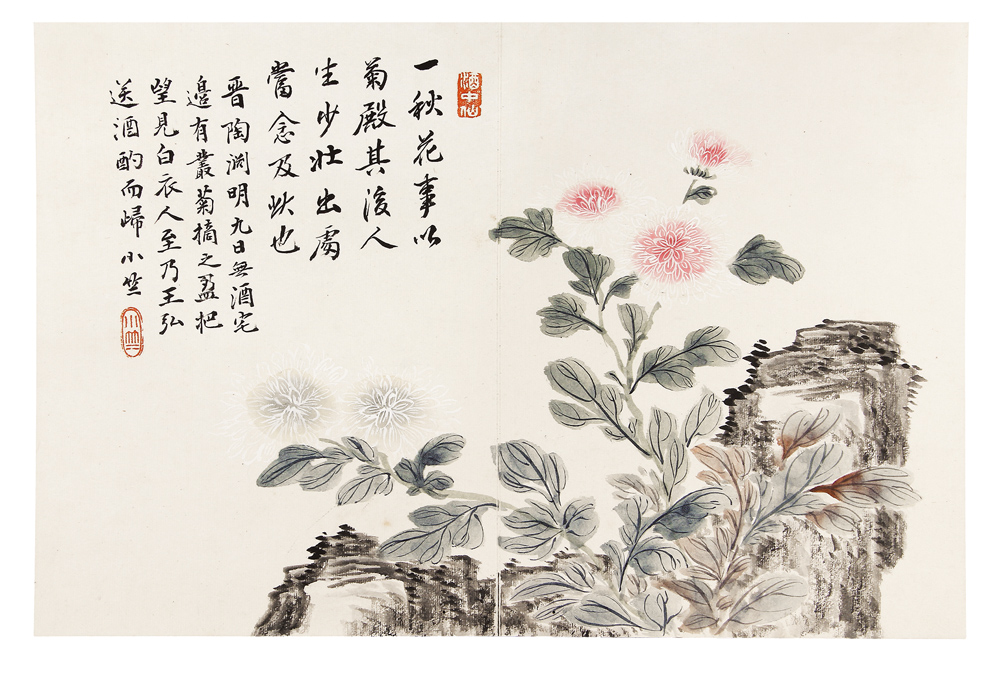 一秋花事以
菊殿其後人
生少壯出處
當念及此也
晉陶淵明九日無酒宅
邊有叢菊摘之盈把
望見白衣人至乃王弘
送酒酌而歸小竺
酒中仙
小竺